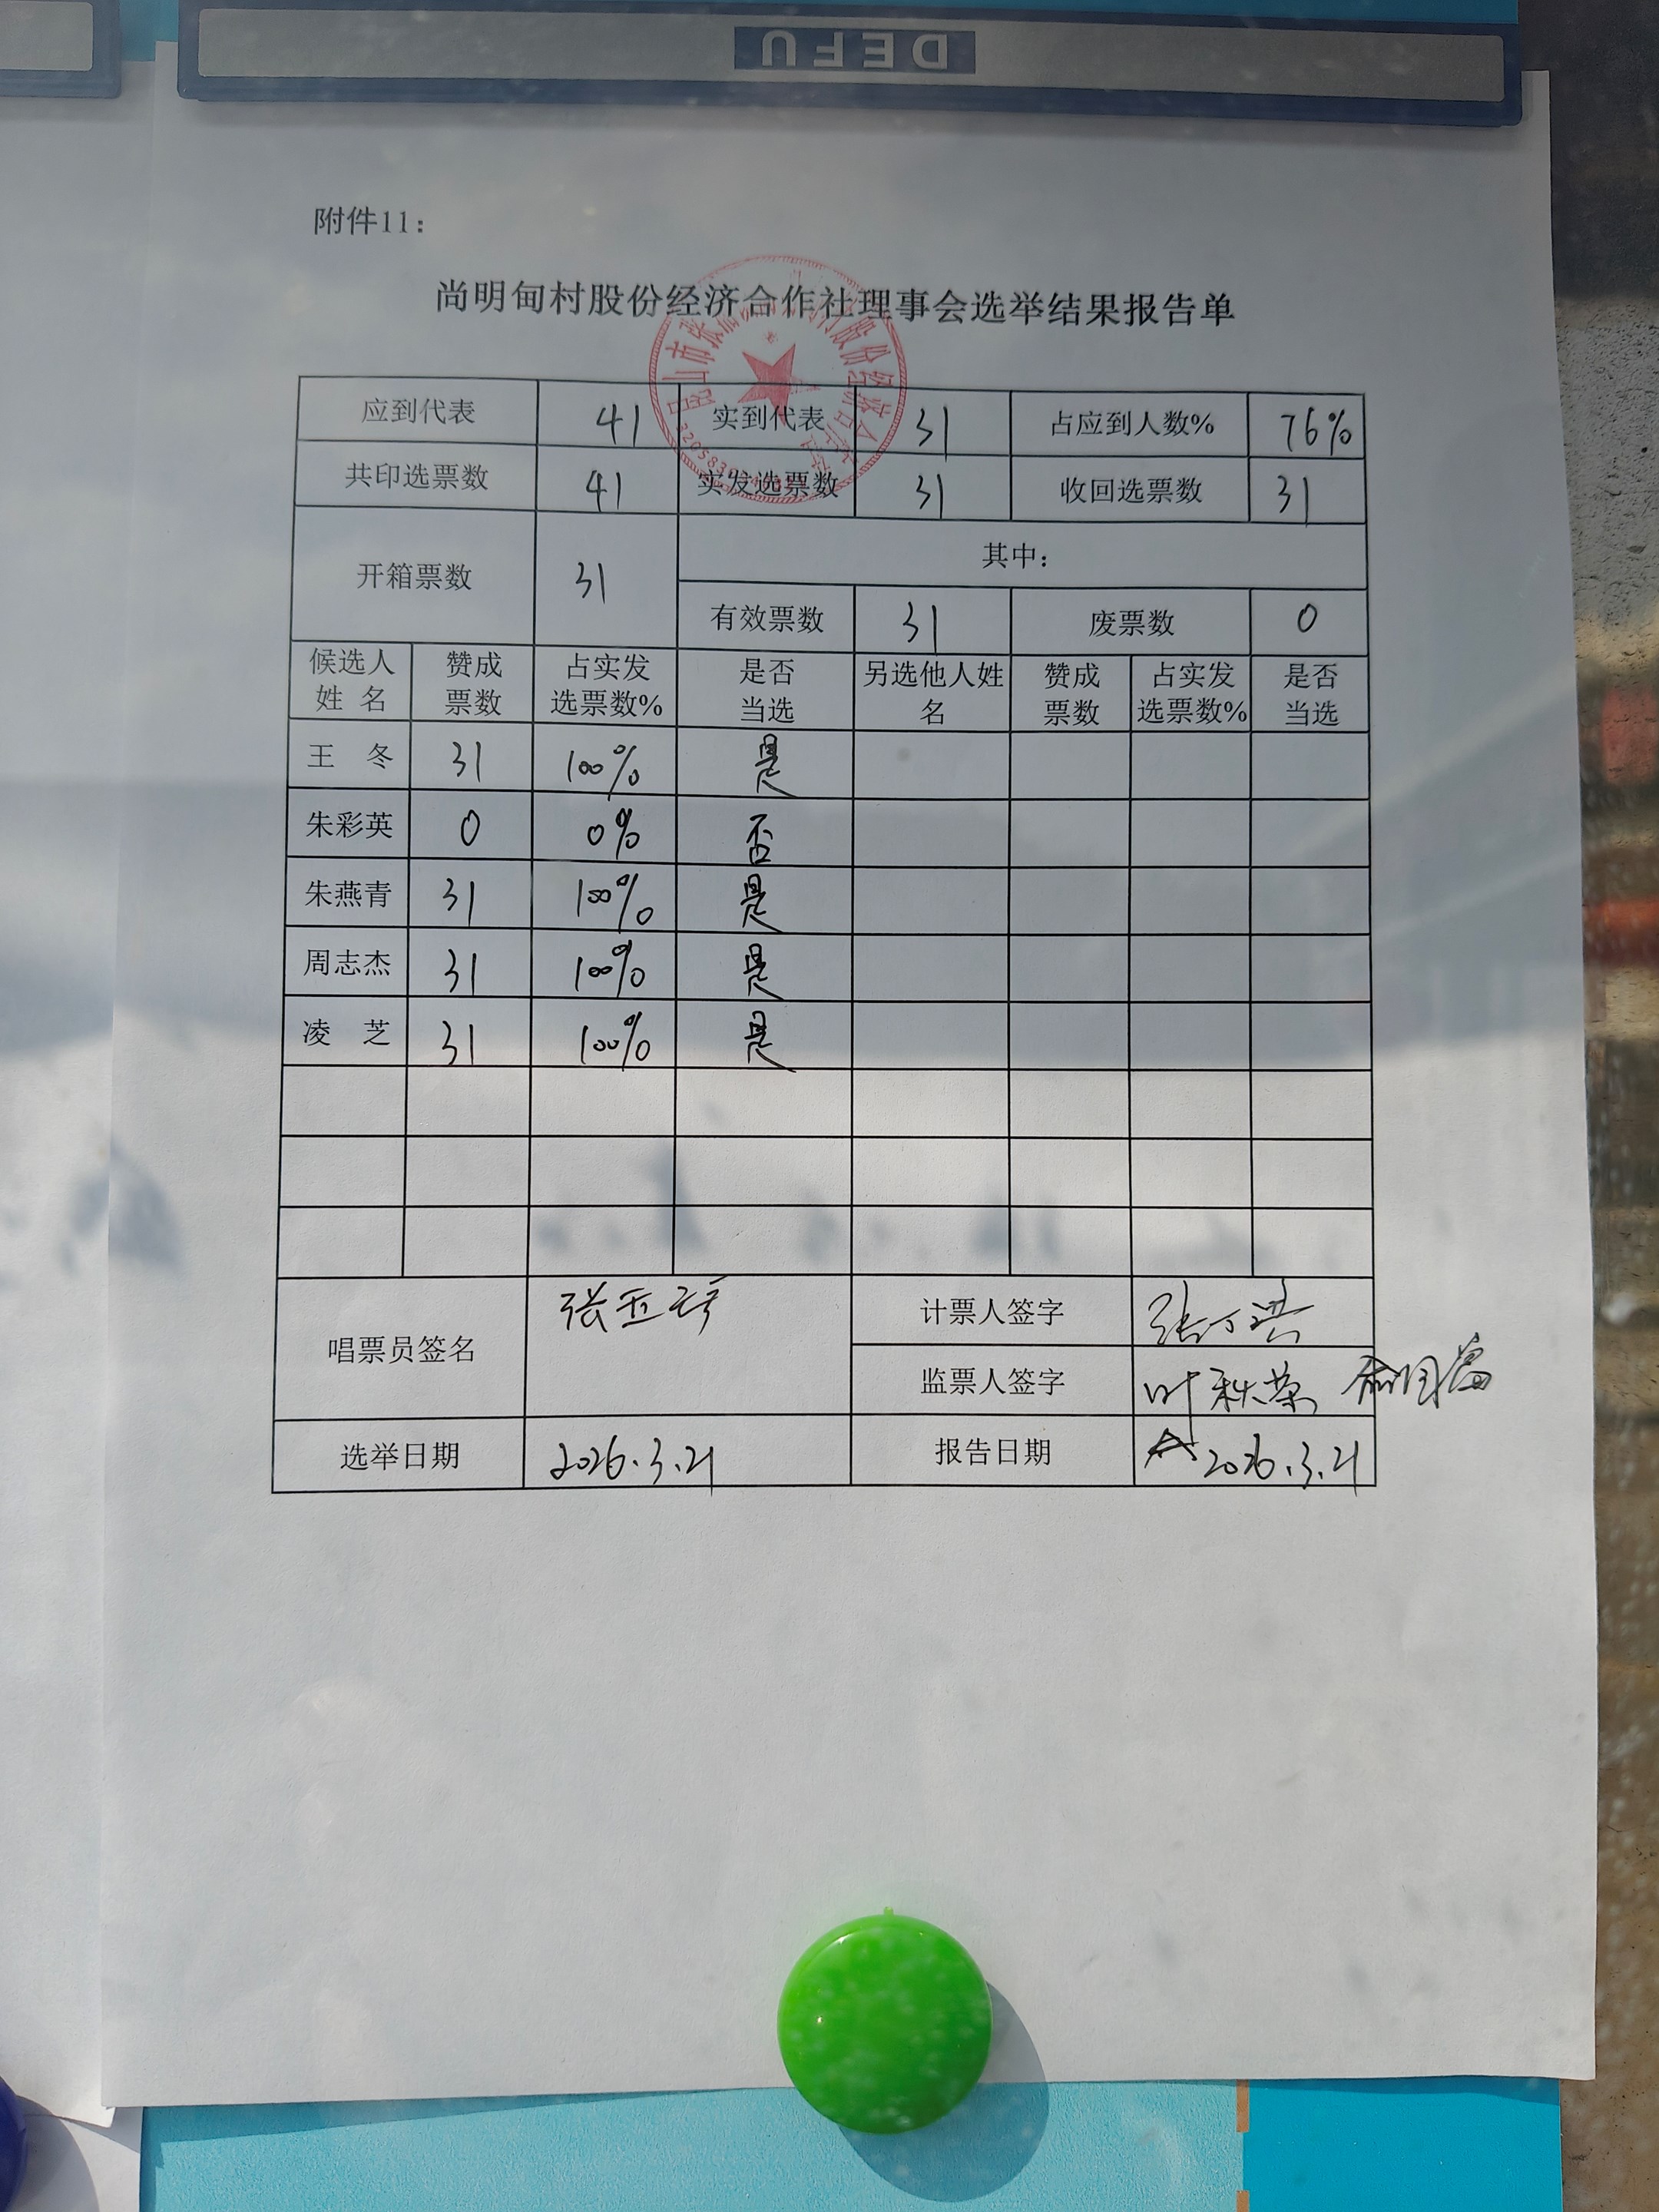 DEFU
附件11：
尚明甸村股份经济合作社理事会选举结果报告单
应到代表 41 实到代表 31 占应到人数% 76%
共印选票数 41 实发选票数 31 收回选票数 31
开箱票数 31 其中：
有效票数 31 废票数 0
候选人姓名 赞成票数 占实发选票数% 是否当选 另选他人姓名 赞成票数 占实发选票数% 是否当选
王 冬 31 100% 是
朱彩英 0 0% 否
朱燕青 31 100% 是
周志杰 31 100% 是
凌 芝 31 100% 是
唱票员签名 张 计票人签字 张
监票人签字 叶秋荣
选举日期 2026.3.21 报告日期 2026.3.21